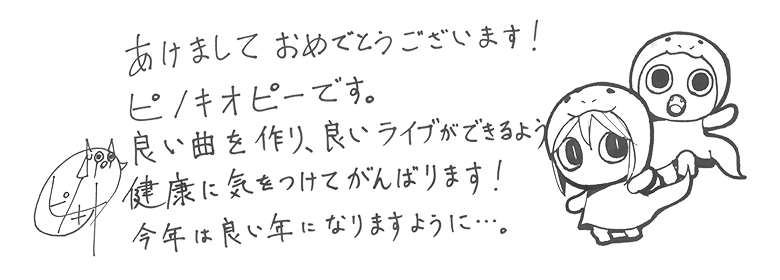 あけまして おめでとうございます！
ピノキオピーです。
良い曲を作り、良いライブができるよう
健康に気をつけてがんばります！
今年は良い年になりますように…。